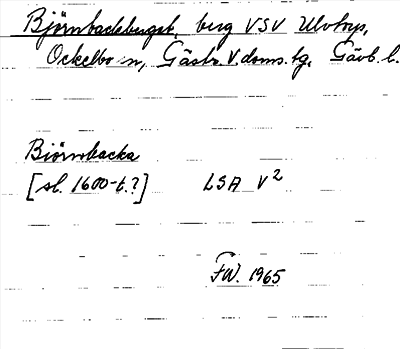 Björnbackberget, berg VSV Ulvtorp,
Ockelbo sn, Gästr. V. doms. tg, Gävb. l.
Björnbacka
[sl. 1600-t.?] LSA V2
FW. 1965